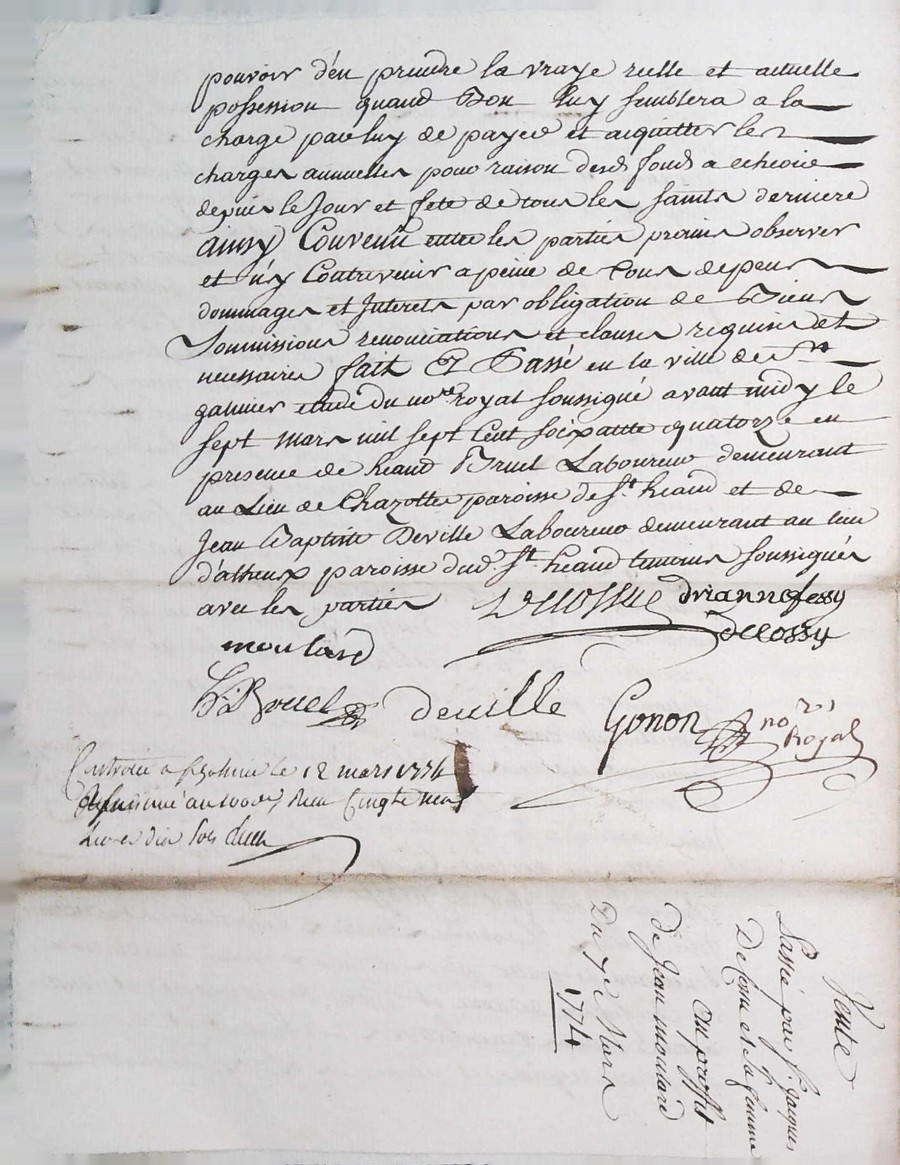 pouvoir d'en prendre la vraye reelle et actuelle
possession quand Bon luy semblera a la
charge par luy de payer et acquitter les
charges annuelles pour raison desd fonds a echeoir
depuis le Jour et fete de tous les saints derniere
ainsy Convenu entre les parties promis observer
et n'y Contrevenir a peine de tous depens
dommages et Interets par obligation de Biens
Soumissions renonciations et clauses requises et
necessaires fait Et Passé en la ville de St
galmier etude du nore royal soussigné avant midy le
sept mars mil sept Cent soixante quatorze en
presence de heand Bruel Laboureur demeurant
au Lieu de Chazottes paroisse de St heand et de
Jean Baptiste Deville Laboureur demeurant au lieu
d'atheux paroisse dud. St heand temoins soussignés
avec les parties
drianne fessy
moulard
decossy
Deville
Gonon
no re Royal
Controllé a St galmier le 12 mars 1774
Insinué au 100e Reçu Cinqte neuf
Livres dix sols
Vente
Passée par Sr. Jacques
et sa femme
au proffit
de Jean moulard
Du 7e Mars
1774